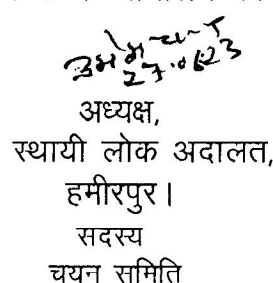 27.06.23
अध्यक्ष,
स्थायी लोक अदालत,
हमीरपुर।
सदस्य
चयन समिति